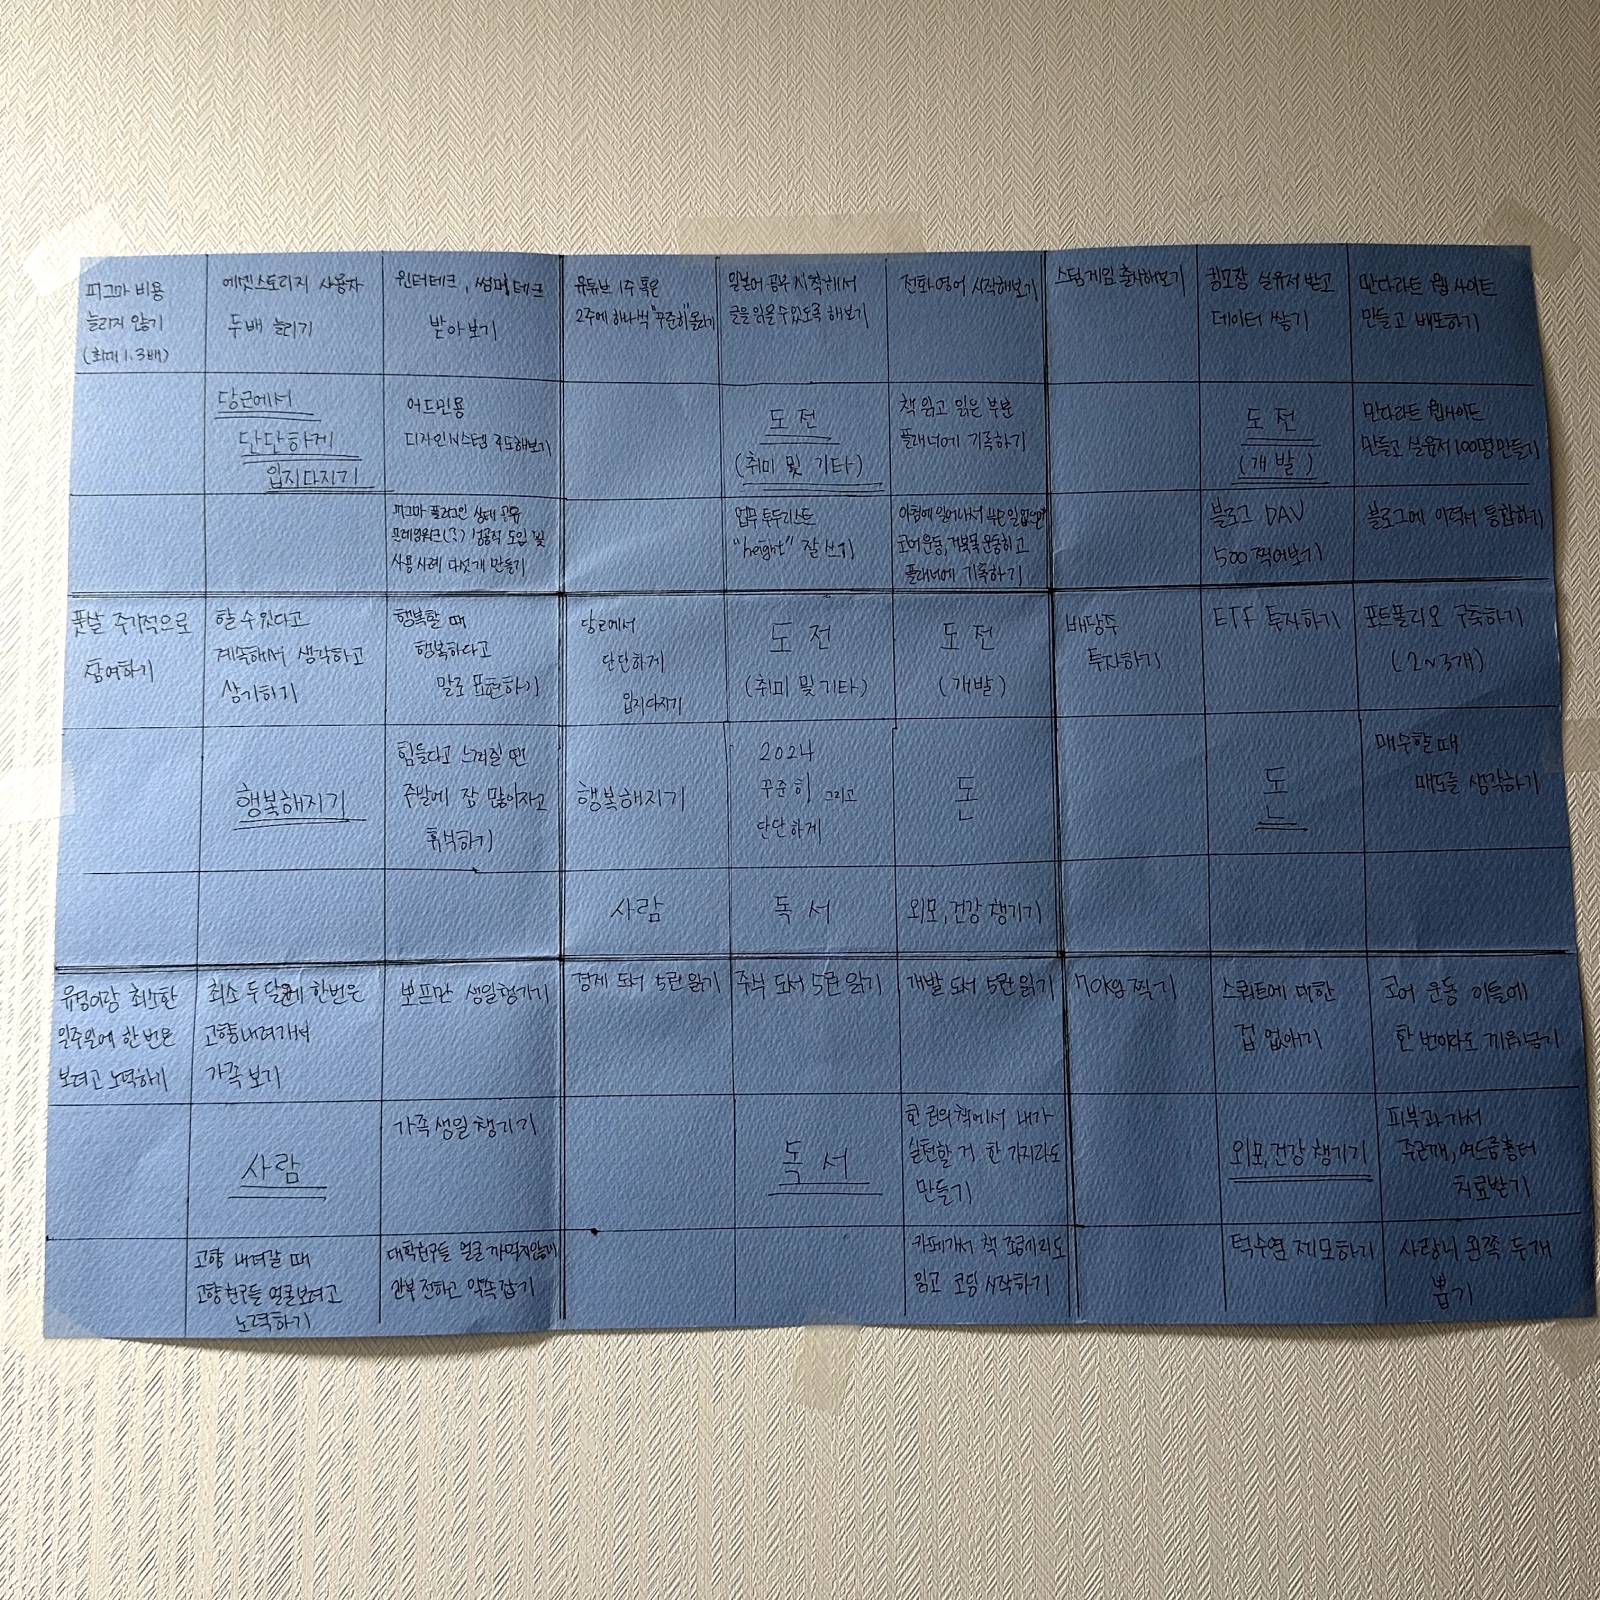 피그마 비용
늘리지 않기
(최대 1.3배)
에셋스토리지 사용자
두배 늘리기
윈터테크, 썸머테크
받아보기
유튜브 1주 혹은
2주에 하나씩 "꾸준히" 올리기
일본어 공부 시작해서
글을 읽을 수 있도록 해보기
전화영어 시작해보기
스팀게임 출시해보기
공모장 실유저 받고
데이터 쌓기
만다라트 웹 사이트
만들고 배포하기
당근에서
단단하게
입지다지기
어드민용
디자인시스템 주도해보기
도전
(취미 및 기타)
책 읽고 읽은 부분
플래너에 기록하기
도전
(개발)
만다라트 웹사이트
만들고 실유저 100명 만들기
피그마 플러그인 상태 공유
프레임워크(?) 성공적 도입 및
사용사례 다섯개 만들기
업무 투두리스트
"height" 잘 쓰기
아침에 일어나서
코어운동, 거북목 운동하고
플래너에 기록하기
블로그 DAU
500 찍어보기
블로그에 이력서 통합하기
풋살 주기적으로
참여하기
할 수 있다고
계속해서 생각하고
상기하기
행복할 때
행복하다고
말로 표현하기
당근에서
단단하게
입지다지기
도전
(취미 및 기타)
도전
(개발)
배당주
투자하기
ETF 투자하기
포트폴리오 구축하기
(2~3개)
행복해지기
힘들다고 느껴질 땐
주말에 잠 많이자고
휴식하기
행복해지기
2024
꾸준히 그리고
단단하게
돈
돈
매수할 때
매도를 생각하기
사람
독서
외모, 건강 챙기기
최소한
일주일에 한 번은
보려고 노력하기
최소 두 달에 한번은
고향내려가서
가족 보기
생일챙기기
경제 도서 5권 읽기
주식 도서 5권 읽기
개발 도서 5권 읽기
70kg 찍기
스쿼트에 대한
겁 없애기
코어 운동 이틀에
한 번이라도 끼워넣기
사람
가족생일 챙기기
독서
한 권의 책에서 내가
실천할 거 한 가지라도
만들기
외모, 건강 챙기기
피부과 가서
주근깨, 여드름흉터
치료받기
고향 내려갈 때
고향친구들 얼굴보려고
노력하기
대학친구들 얼굴 까먹지않게
안부 전하고 약속잡기
카페가서 책 조금이라도
읽고 코딩 시작하기
턱수염 제모하기
사랑니 왼쪽 두개
뽑기